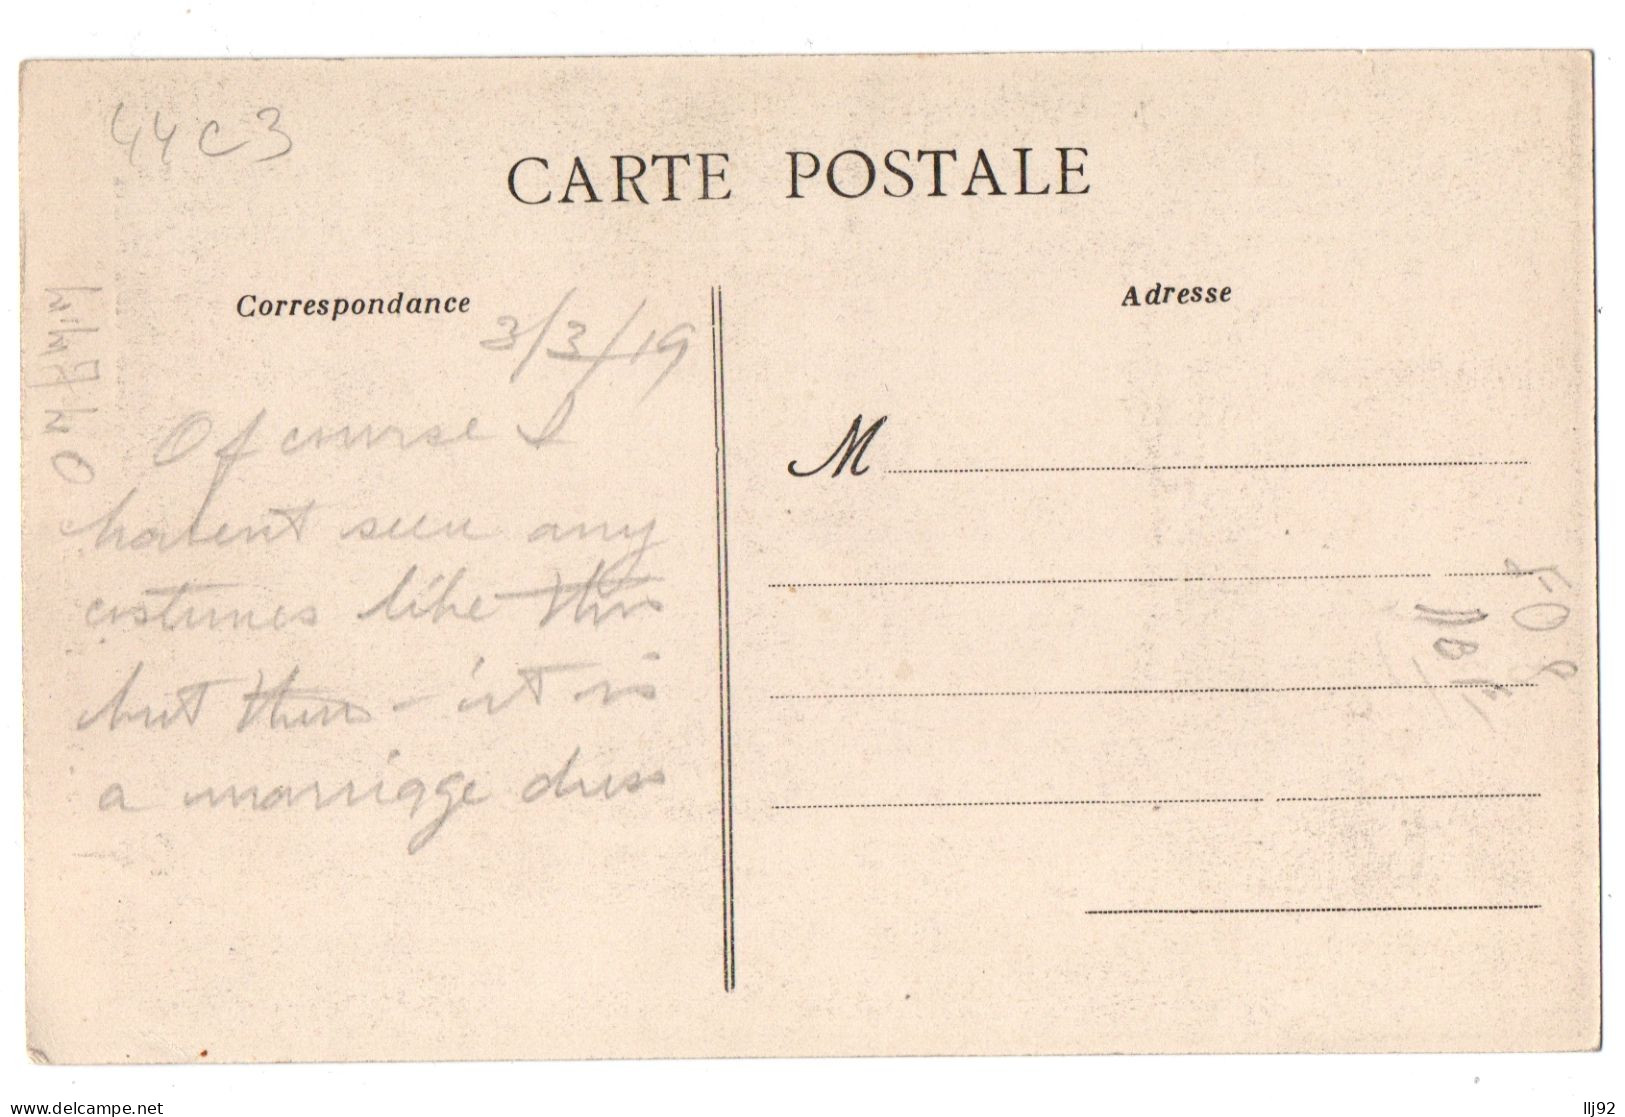 44C3
CARTE POSTALE
Correspondance
Adresse
3/3/19
M
Of course I
havent seen any
costumes like this
but then - it is
a marriage dress
delcampe.net
llj92